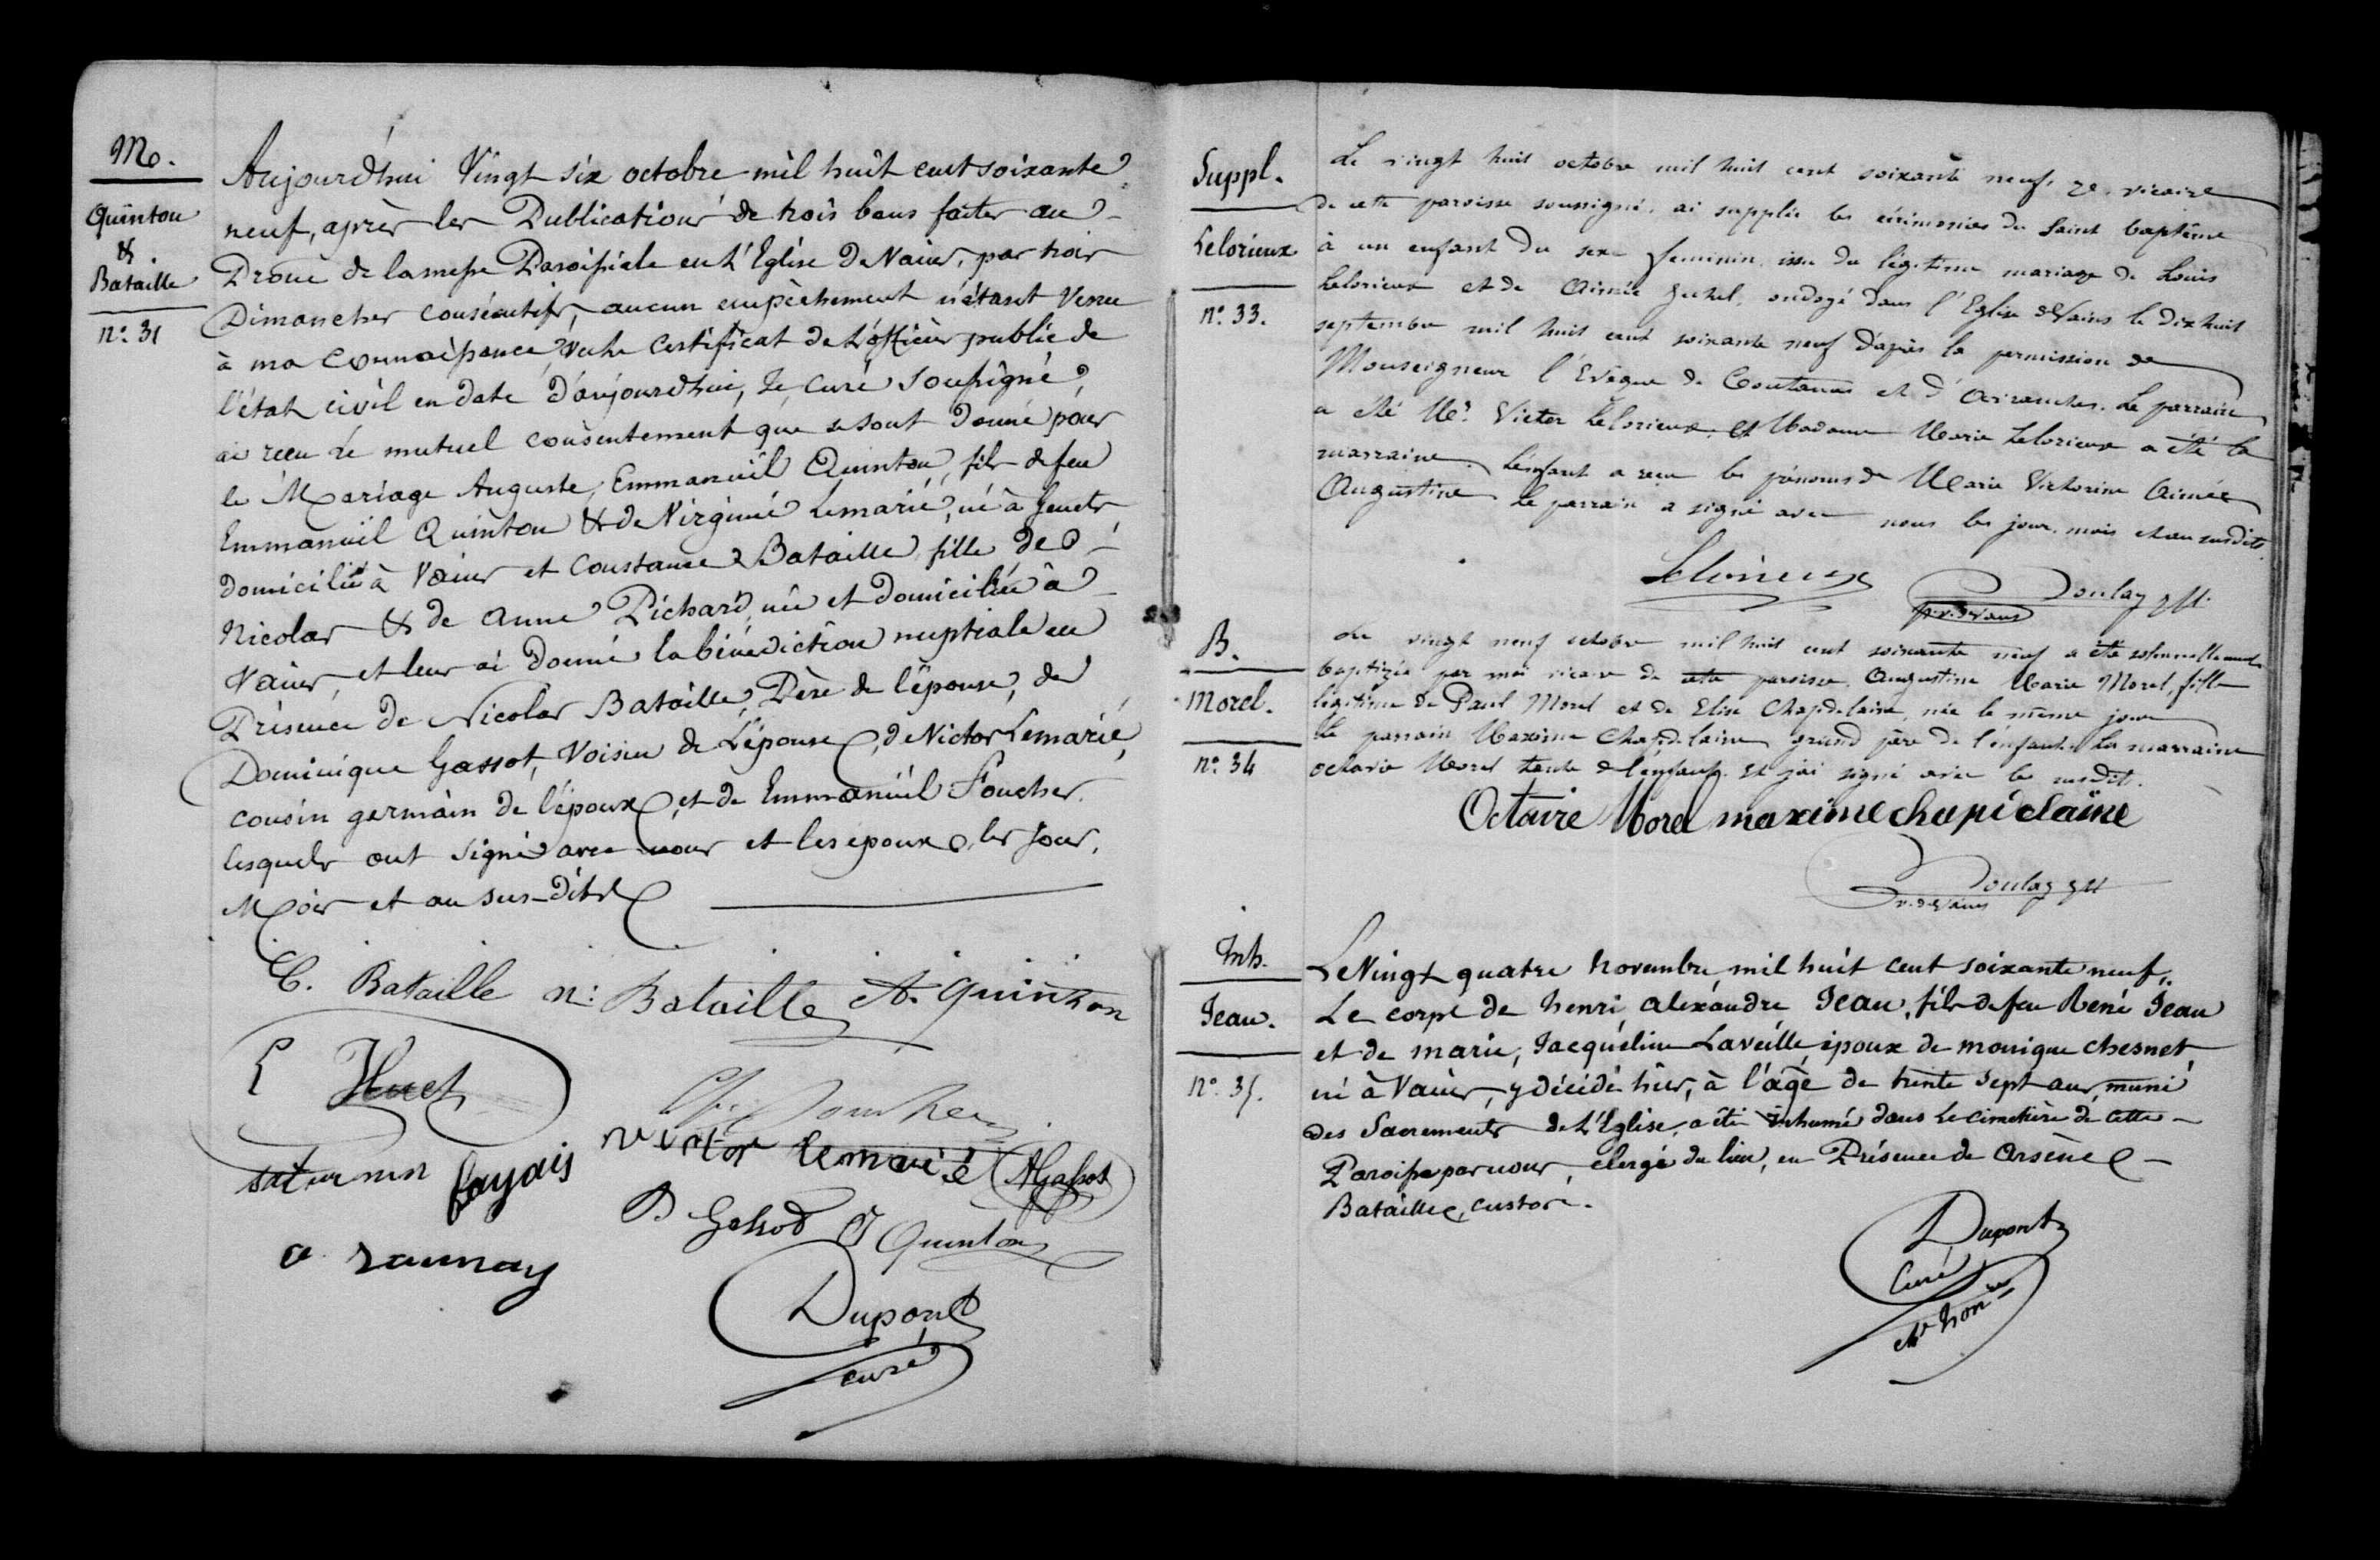 M.
Quinton
&
Bataille
n.° 31
Aujourd'hui Vingt six octobre mil huit cent soixante
neuf, après les Publications de trois bans faites au
Prône de la messe Paroissiale en l'Eglise de Vains, par trois
Dimanches consécutifs, aucun empêchement n'étant Venu
à ma connaissance, vu le certificat de l'officier public de
l'état civil en date d'aujourd'hui, Je, curé soussigné,
ai reçu le mutuel consentement que se sont donné pour
le Mariage Auguste, Emmanuël Quinton, fils de feu
Emmanuël Quinton & de Virginie Lemarié, né à Genets
domicilié à Vains et Constance Bataille, fille de
Nicolas & de Anne Pichard, née et domiciliée à
Vains, et leur ai donné la bénédiction nuptiale en
Présence de Nicolas Bataille, Père de l'épouse, de
Dominique Gassot, Voisin de l'épouse, de Victor Lemarié,
cousin germain de l'époux, et de Emmanuël Foucher.
lesquels ont signé avec nous et les epoux, les Jour,
Mois et an sus-dits
C. Bataille n: Bataille A. quinton
Huet
victor lemarié AGassot
saturnin
D
Quinton
Dupont
curé
Suppl.
Lelorieux
n.° 33.
Le vingt huit octobre mil huit cent soixante neuf, Je, vicaire
de cette paroisse soussigné, ai supplié les cérémonies du Saint baptême
à un enfant du sexe feminin, issu du légitime mariage de Louis
Lelorieux et de Aimée, ondoyé dans l'Eglise de Vains le dix huit
septembre mil huit cent soixante neuf d'après la permission de
Monseigneur l'Evêque de Coutances et d'Avranches. Le parrain
a été Mr. Victor Lelorieux, et Madame Marie Lelorieux a été la
marraine. L'enfant a reçu les prénoms de Marie Victorine Aimée
Augustine. Le parrain a signé avec nous les jour, mois et an susdits.
Lelorieux
B.
Morel.
n.° 34
Le vingt neuf octobre mil huit cent soixante neuf a été solennellement
baptizée par moi vicaire de cette paroisse, Augustine Marie Morel, fille
legitime de Paul Morel et de Elise Chapdelaine, née le même jour
le parrain Maxime Chapdelaine grand père de l'enfant. La marraine
octavie Morel tante de l'enfant. Et j'ai signé avec les susdits.
Octavie Morel maxime chapdelaine
Inh.
Jeau.
n.° 35.
Le Vingt quatre novembre mil huit cent soixante neuf,
Le corps de henri alexandre Jeau, fils de feu René Jeau
et de marie, Jacquéline Laveille, époux de monique chesnet,
né à Vains, y décédé hier, à l'âge de trente sept ans, muni
des Sacrements de l'Eglise, a été inhumé dans le cimetière de cette
Paroisse par nous, clergé du lieu, en Présence de Arsène
Bataille, custos.
Dupont
Curé